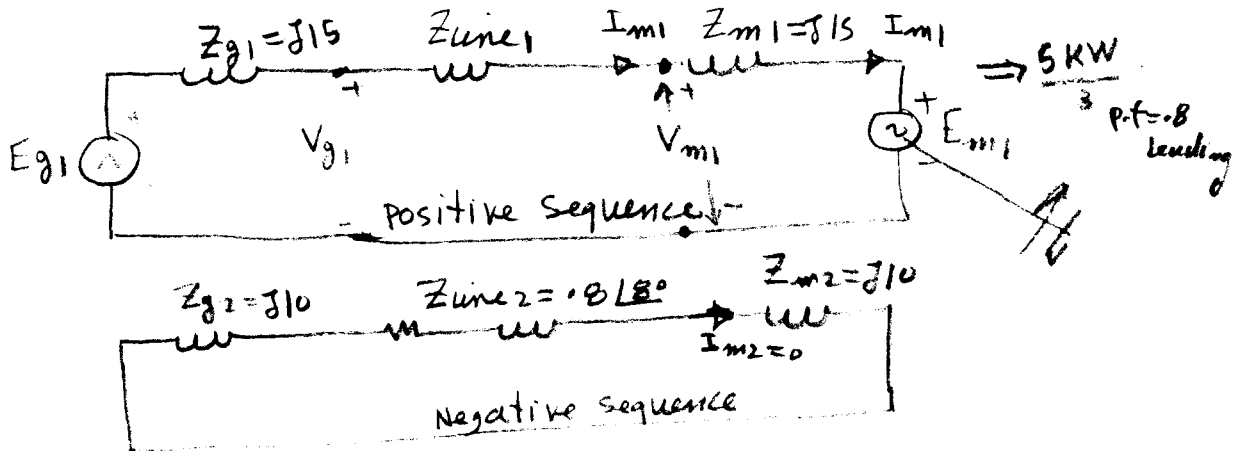 Zg1 = J15 Zline1 Im1 Zm1 = J15 Im1
⇒ 5 KW / 3
p.f = .8
Leading
Eg1 + Vg1 - + Vm1 - + Em1 -
Positive Sequence
Zg2 = J10 Zline2 = .8∠8° Zm2 = J10
Im2 = 0
Negative sequence